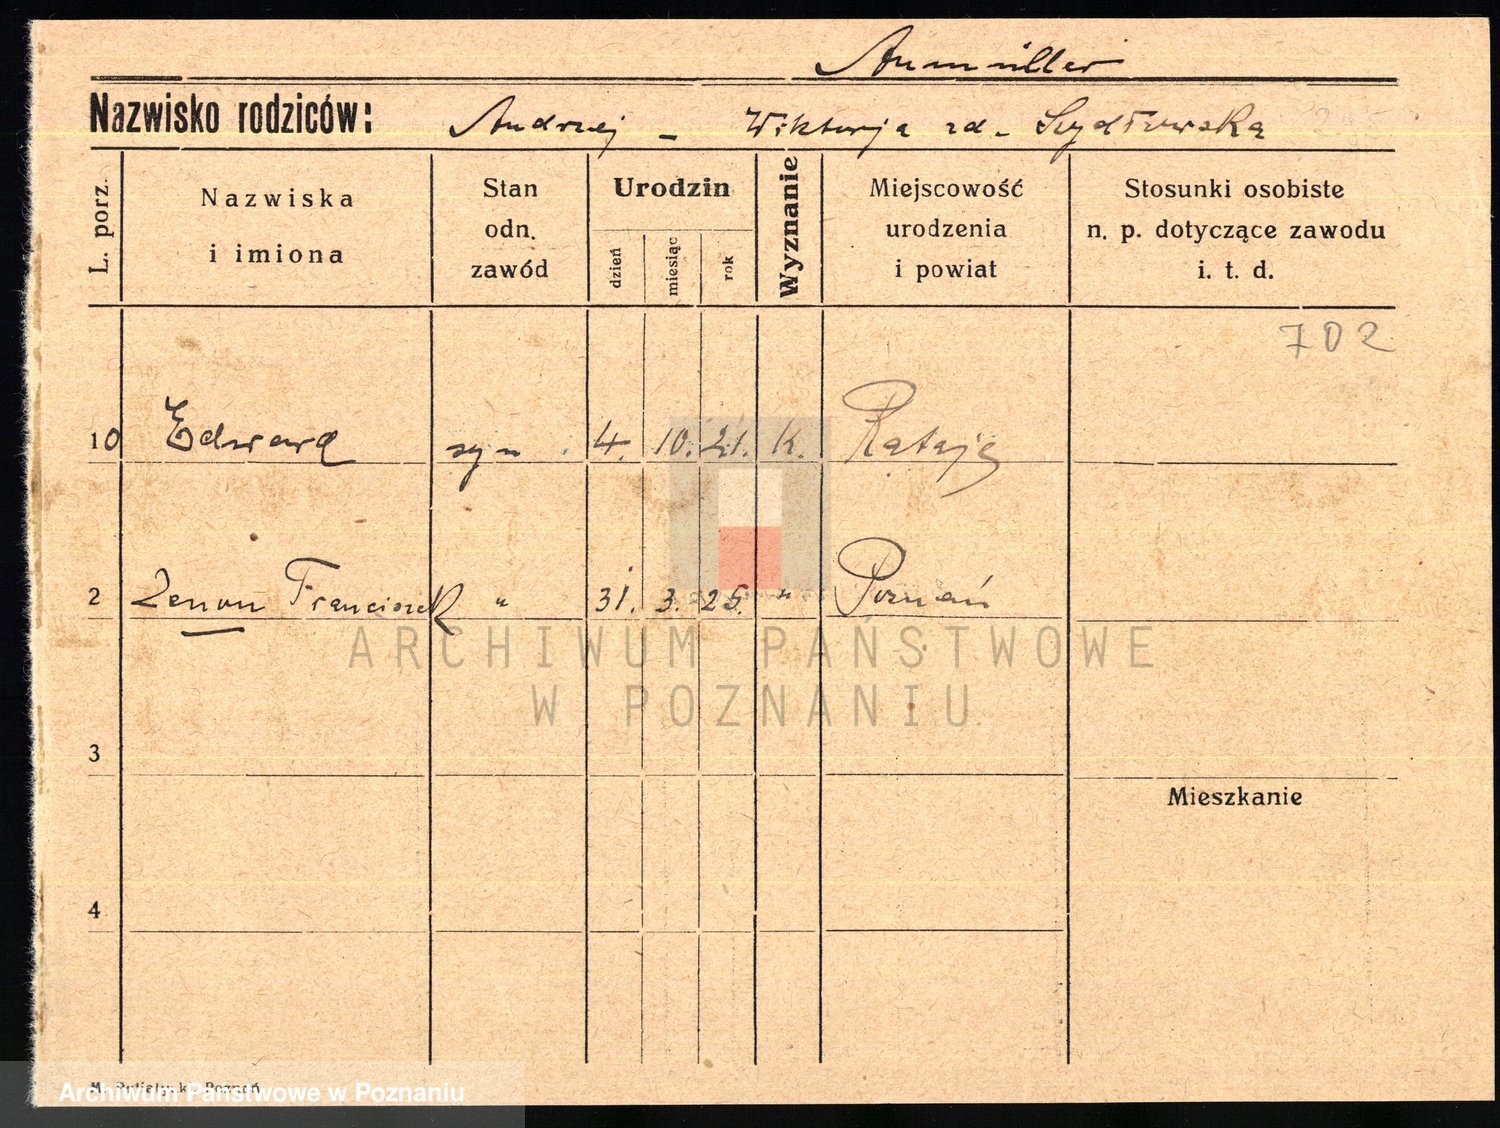 Aumüller
Nazwisko rodziców: Andrzej – Wiktorja zd. Szydłowska
L. porz.
Nazwiska i imiona
Stan odn. zawód
Urodzin
dzień
miesiąc
rok
Wyznanie
Miejscowość urodzenia i powiat
Stosunki osobiste n. p. dotyczące zawodu i. t. d.
702
10 Edward syn 4. 10. 21. K. Rataje
2 Zenon Franciszek " 31. 3. 25. " Poznań
ARCHIWUM PAŃSTWOWE
W POZNANIU
3
Mieszkanie
4
Archiwum Państwowe w Poznaniu